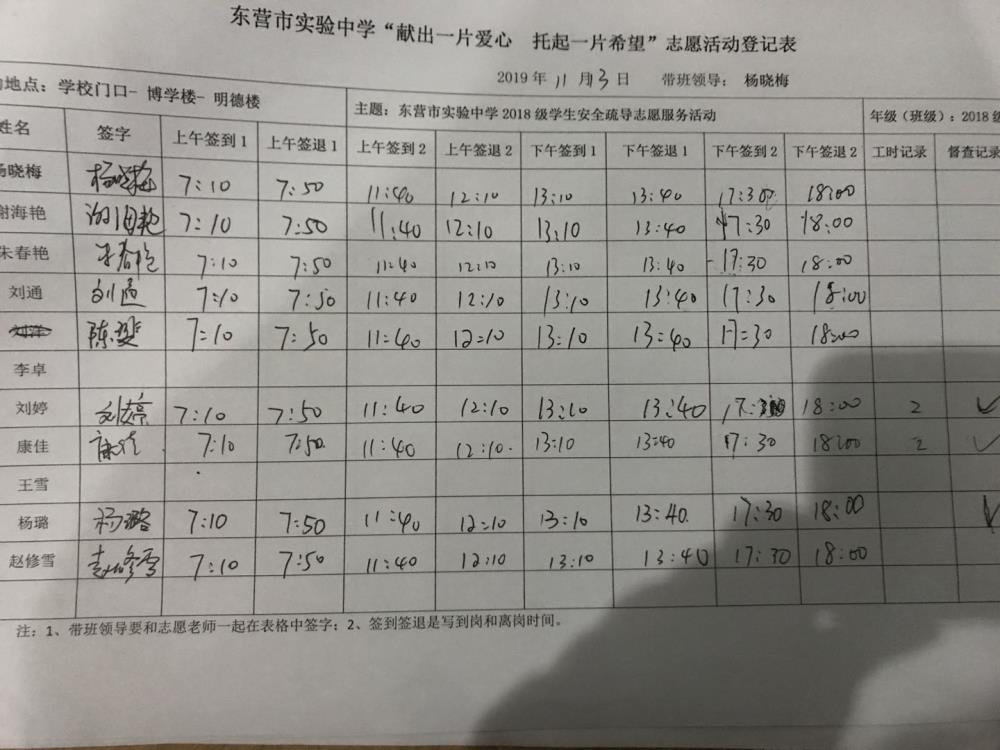 东营市实验中学“献出一片爱心 托起一片希望”志愿活动登记表
2019年11月3日 带班领导：杨晓梅
地点：学校门口- 博学楼- 明德楼 主题：东营市实验中学2018级学生安全疏导志愿服务活动 年级（班级）：2018级
姓名 签字 上午签到1 上午签退1 上午签到2 上午签退2 下午签到1 下午签退1 下午签到2 下午签退2 工时记录 督查记录
杨晓梅 杨晓梅 7:10 7:50 11:40 12:10 13:10 13:40 17:30 18:00
谢海艳 谢海艳 7:10 7:50 11:40 12:10 13:10 13:40 17:30 18:00
朱春艳 朱春艳 7:10 7:50 11:40 12:10 13:10 13:40 17:30 18:00
刘通 刘通 7:10 7:50 11:40 12:10 13:10 13:40 17:30 18:00
陈 7:10 7:50 11:40 12:10 13:10 13:40 17:30 18:00
李卓
刘婷 刘婷 7:10 7:50 11:40 12:10 13:10 13:40 17:30 18:00 2 ✓
康佳 康佳 7:10 7:50 11:40 12:10 13:10 13:40 17:30 18:00 2 ✓
王雪
杨璐 杨璐 7:10 7:50 11:40 12:10 13:10 13:40 17:30 18:00 ✓
赵修雪 赵修雪 7:10 7:50 11:40 12:10 13:10 13:40 17:30 18:00
注：1、带班领导要和志愿老师一起在表格中签字；2、签到签退是写到岗和离岗时间。